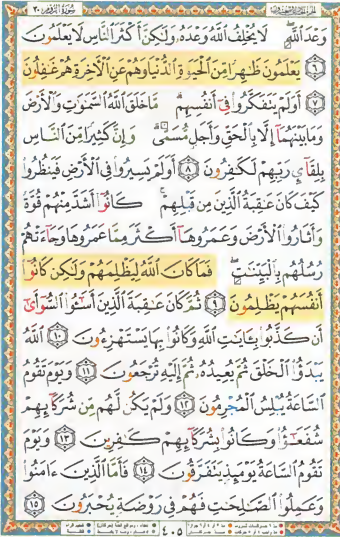 سُورَةُ الرُّومِ ٣٠
وَعْدَ اللَّهِ ۖ لَا يُخْلِفُ اللَّهُ وَعْدَهُ وَلَٰكِنَّ أَكْثَرَ النَّاسِ لَا يَعْلَمُونَ
﴿٦﴾ يَعْلَمُونَ ظَاهِرًا مِّنَ الْحَيَاةِ الدُّنْيَا وَهُمْ عَنِ الْآخِرَةِ هُمْ غَافِلُونَ
﴿٧﴾ أَوَلَمْ يَتَفَكَّرُوا فِي أَنفُسِهِم ۗ مَّا خَلَقَ اللَّهُ السَّمَاوَاتِ وَالْأَرْضَ
وَمَا بَيْنَهُمَا إِلَّا بِالْحَقِّ وَأَجَلٍ مُّسَمًّى ۗ وَإِنَّ كَثِيرًا مِّنَ النَّاسِ
بِلِقَاءِ رَبِّهِمْ لَكَافِرُونَ ﴿٨﴾ أَوَلَمْ يَسِيرُوا فِي الْأَرْضِ فَيَنظُرُوا
كَيْفَ كَانَ عَاقِبَةُ الَّذِينَ مِن قَبْلِهِمْ ۚ كَانُوا أَشَدَّ مِنْهُمْ قُوَّةً
وَأَثَارُوا الْأَرْضَ وَعَمَرُوهَا أَكْثَرَ مِمَّا عَمَرُوهَا وَجَاءَتْهُمْ
رُسُلُهُم بِالْبَيِّنَاتِ ۖ فَمَا كَانَ اللَّهُ لِيَظْلِمَهُمْ وَلَٰكِن كَانُوا
أَنفُسَهُمْ يَظْلِمُونَ ﴿٩﴾ ثُمَّ كَانَ عَاقِبَةَ الَّذِينَ أَسَاءُوا السُّوأَىٰ
أَن كَذَّبُوا بِآيَاتِ اللَّهِ وَكَانُوا بِهَا يَسْتَهْزِئُونَ ﴿١٠﴾ اللَّهُ
يَبْدَأُ الْخَلْقَ ثُمَّ يُعِيدُهُ ثُمَّ إِلَيْهِ تُرْجَعُونَ ﴿١١﴾ وَيَوْمَ تَقُومُ
السَّاعَةُ يُبْلِسُ الْمُجْرِمُونَ ﴿١٢﴾ وَلَمْ يَكُن لَّهُم مِّن شُرَكَائِهِمْ
شُفَعَاءُ وَكَانُوا بِشُرَكَائِهِمْ كَافِرِينَ ﴿١٣﴾ وَيَوْمَ
تَقُومُ السَّاعَةُ يَوْمَئِذٍ يَتَفَرَّقُونَ ﴿١٤﴾ فَأَمَّا الَّذِينَ آمَنُوا
وَعَمِلُوا الصَّالِحَاتِ فَهُمْ فِي رَوْضَةٍ يُحْبَرُونَ ﴿١٥﴾
٤٠٥